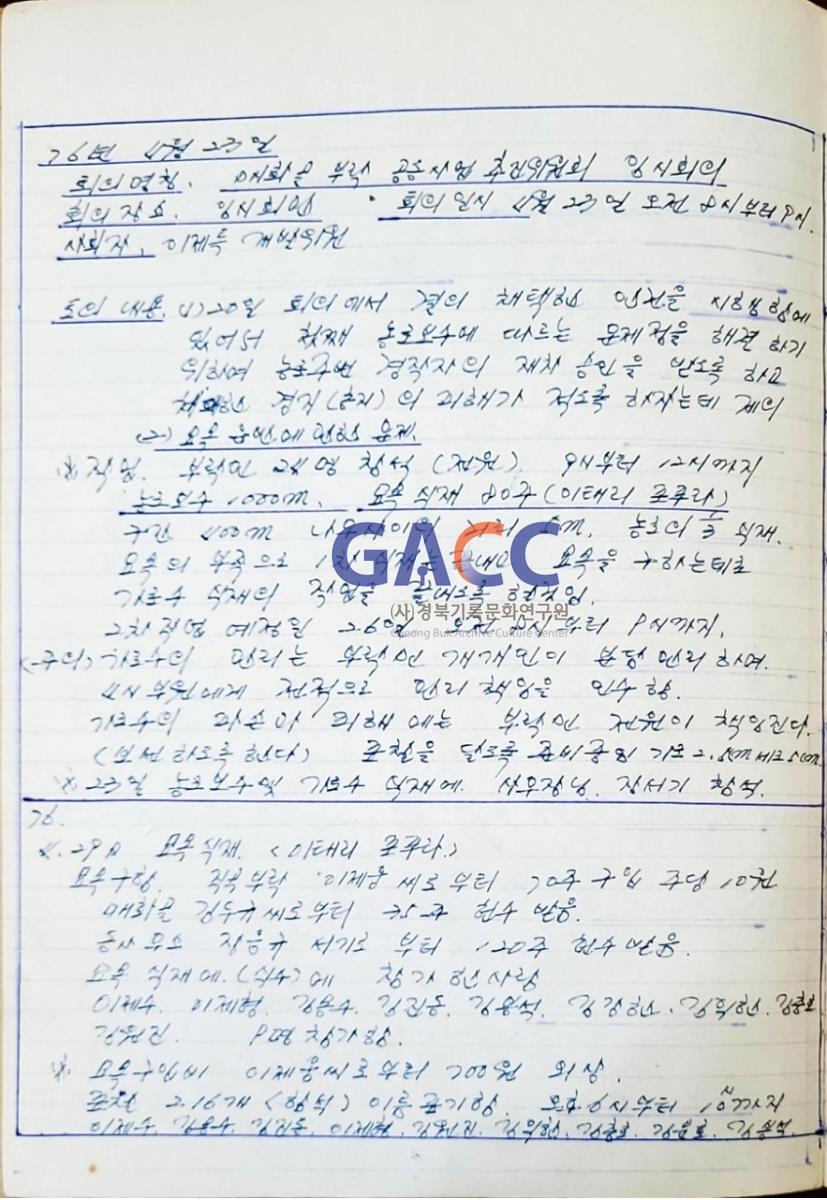 76년 4월 23일
회의명칭. 매화골 부락 공동사업 추진위원회 임시회의
회의 장소. 임시회관 회의 일시 4월 23일 오전 8시부터 9시.
사회자. 이제득 개발위원
토의 내용. (1) 20일 회의에서 결의 채택한 안건을 시행함에
있어서 첫째 농로보수에 따르는 문제점을 해결하기
위하여 농로주변 경작자의 재차 승인을 받도록 하고
경지 (훈지)의 피해가 적도록 하자는데 제의
(2) 묘목 운반에 관한 문제.
※ 작업. 부락민 24명 참석 (전원). 9시부터 12시까지
농로보수 1000m. 묘목 식재 80주 (이태리 포푸라)
구간 400m 나무사이의 거리 5m. 농로의 식재.
묘목의 부족으로 1차 식재는 끝내고 묘목을 구하는데로
가로수 식재의 작업을 끝내도록 현작임.
GACC
(사)경북기록문화연구원
Gyeong Buk Archive Culture Center
2차 작업 예정일 26일 오전 8시부터 9시까지.
(주의) 가로수의 관리는 부락민 개개인이 분담 관리하며.
4H 부원에게 전적으로 관리 책임을 인수함.
가로수의 파손이나 피해에는 부락민 전원이 책임진다.
(보전하도록 한다) 표찰을 달도록 준비중임 가로 2.5cm 세로 5cm.
※ 23일 농로보수및 가로수 식재에. 장서기 참석.
76.
4. 29日 묘목식재. (이태리 포푸라.)
묘목구함. 직곡부락 이제웅씨로부터 70주 구입 주당 10원
매화골 김두규씨로부터 35주 헌수 받음.
동사무소 장응규 서기로 부터 120주 헌수받음.
묘목 식재에. (식수)에 참가한사람
이제수. 이제형. 김용수. 김진동. 김용석. 김장한. 김위한. 김홍로
김원진. 9명 참가함.
※ 묘목구입비 이제웅씨로부터 700원 외상.
표찰 216개 (함석) 이름표기함. 오후 6시부터 10시까지
이제수. 김용수. 김진동. 이제형. 김원진. 김위한. 김홍로. 김윤로. 김용석.